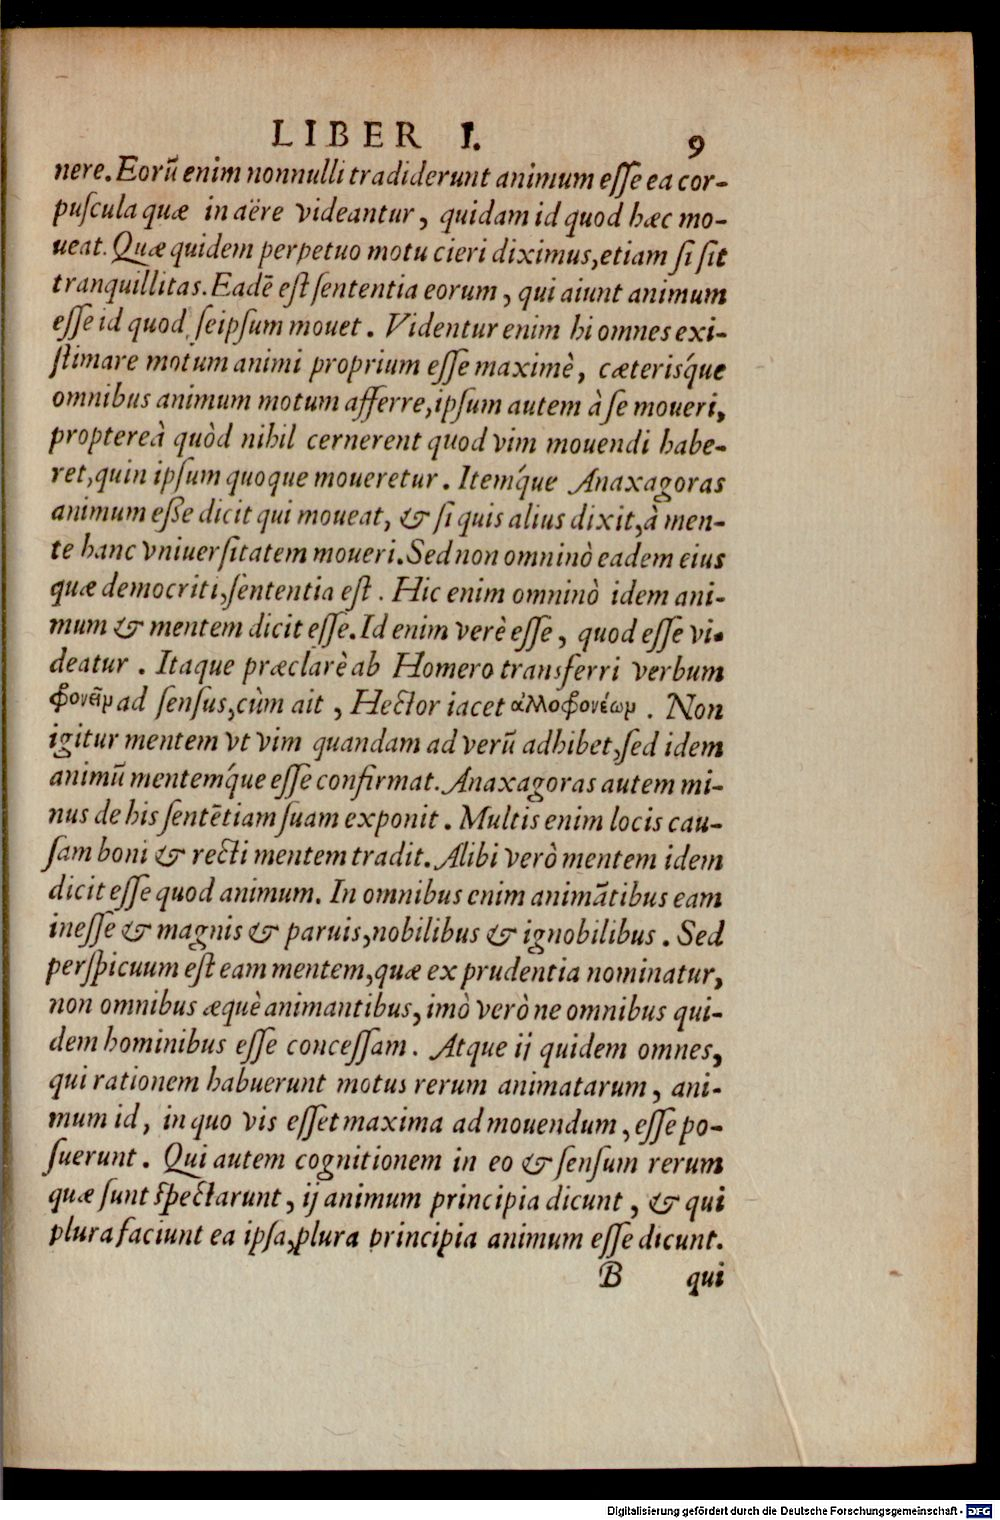 LIBER I. 9
nere. Eorũ enim nonnulli tradiderunt animum eſſe ea cor-
puſcula quæ in aëre videantur, quidam id quod hæc mo-
ueat. Quæ quidem perpetuo motu cieri diximus, etiam ſi ſit
tranquillitas. Eadē eſt ſententia eorum, qui aiunt animum
eſſe id quod ſeipſum mouet. Videntur enim hi omnes exi-
ſtimare motum animi proprium eſſe maximè, cæteriśque
omnibus animum motum afferre, ipſum autem à ſe moueri,
propterea̔ quòd nihil cernerent quod vim mouendi habe-
ret, quin ipſum quoque moueretur. Iteḿque Anaxagoras
animum eſſe dicit qui moueat, & ſi quis alius dixit, à men-
te hanc vniuerſitatem moueri. Sed non omninò eadem eius
quæ democriti, ſententia eſt. Hic enim omninò idem ani-
mum & mentem dicit eſſe. Id enim verè eſſe, quod eſſe vi-
deatur. Itaque præclarè ab Homero transferri verbum
φρονεῖν ad ſenſus, cùm ait, Hector iacet ἀλλοφρονέων. Non
igitur mentem vt vim quandam ad verũ adhibet, ſed idem
animũ menteḿque eſſe confirmat. Anaxagoras autem mi-
nus de his ſentētiam ſuam exponit. Multis enim locis cau-
ſam boni & recti mentem tradit. Alibi verò mentem idem
dicit eſſe quod animum. In omnibus enim animãtibus eam
ineſſe & magnis & paruis, nobilibus & ignobilibus. Sed
perſpicuum eſt eam mentem, quæ ex prudentia nominatur,
non omnibus æquè animantibus, imò verò ne omnibus qui-
dem hominibus eſſe conceſſam. Atque ij quidem omnes,
qui rationem habuerunt motus rerum animatarum, ani-
mum id, in quo vis eſſet maxima ad mouendum, eſſe po-
ſuerunt. Qui autem cognitionem in eo & ſenſum rerum
quæ ſunt ſpectarunt, ij animum principia dicunt, & qui
plura faciunt ea ipſa, plura principia animum eſſe dicunt.
B qui
Digitalisierung gefördert durch die Deutsche Forschungsgemeinschaft - DFG